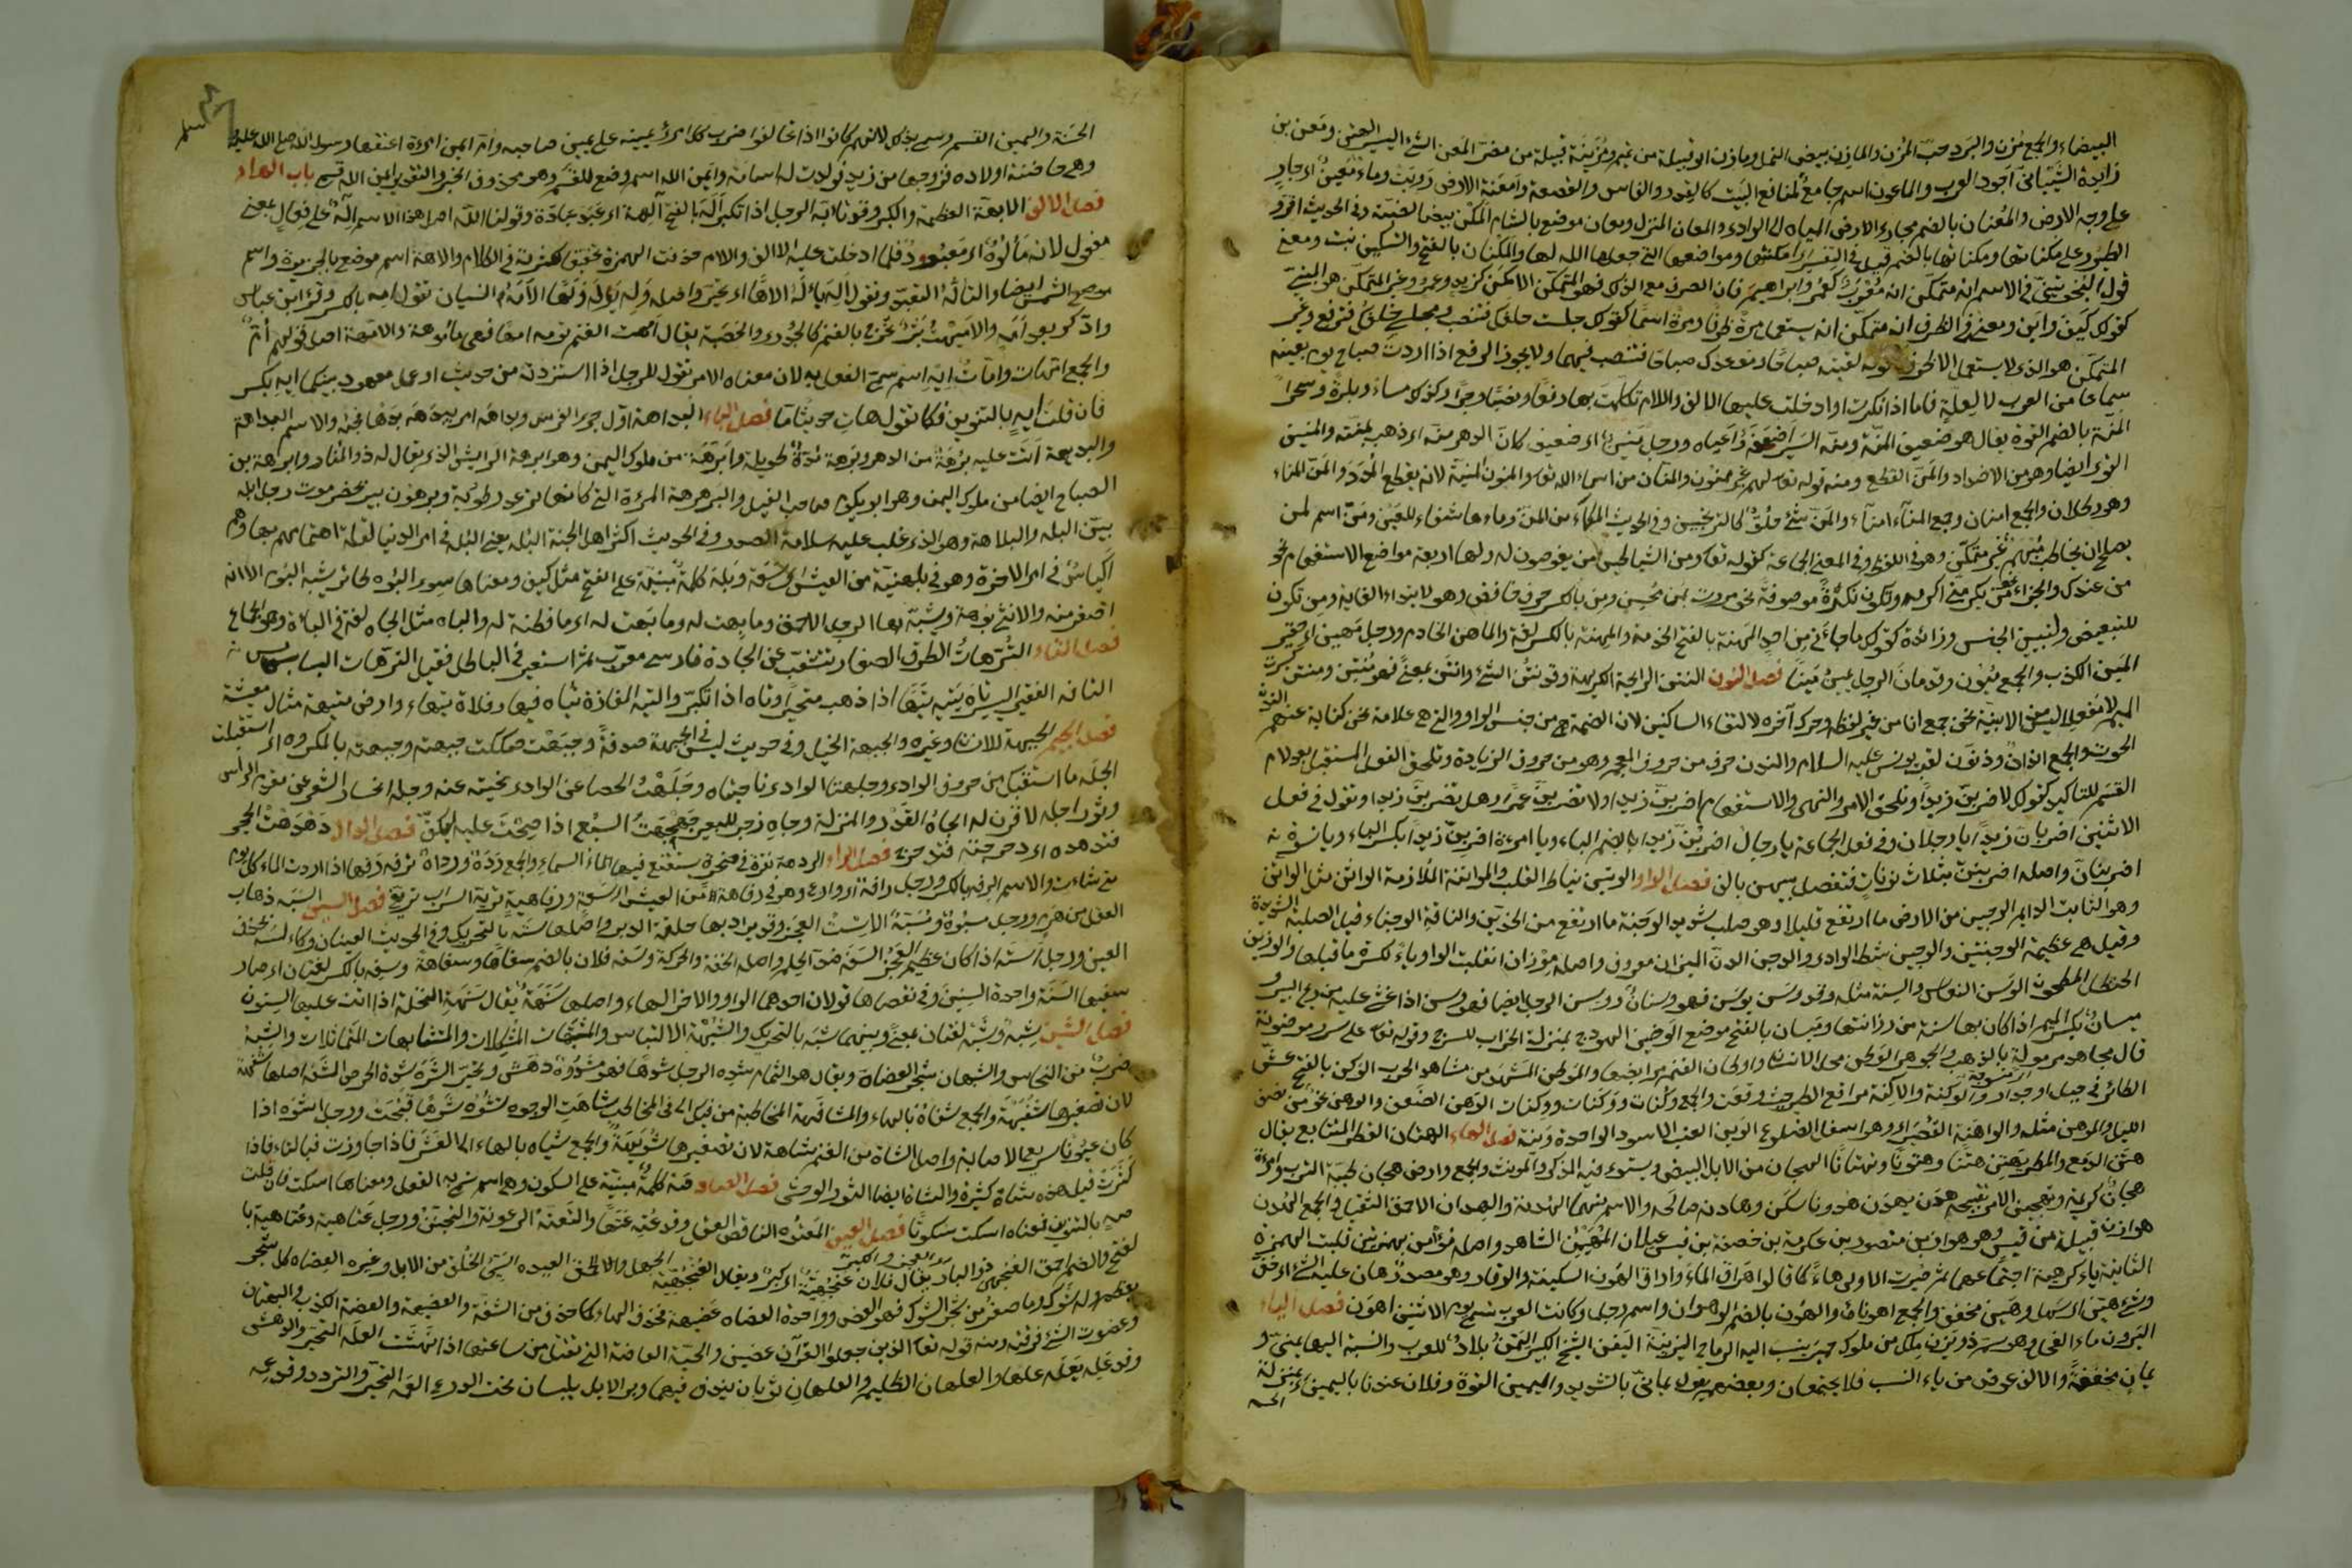 البيضاء والجمع مُزن والبَرَد حبّ المُزن والمازن بيض النمل ومازن ابو قبيلة من تميم ومُزَينَة قبيلة من مضر المَعن الشئ اليسير الهيّن ومَعن بن
زايدة الشيبانى اجود العرب والماعون اسم جامع لمنافع البيت كالقدر والفاس والقصعة وامعنَت الارض رَوِيَت وماء مَعِين اى جارٍ
على وجه الارض والمُعنان بالضم مجارى المياه فى الوادى والمعان المنزل ومعان موضع بالشام المَكْن بيض الضبّة وفى الحديث اقروا
الطيور على مكناتها ومكناتها بالضم قيل فى التفسير امكنتها ومواضعها التى جعلها الله لها والمَكنان بالفتح والتسكين نبت ومعنى
قول النحويين فى الاسم انه متمكن انه مُعْرَب كعُمَر وابراهيم فان انصرف مع ذلك فهو المتمكن الامكن كزيد وعمرو وغير المتمكن هو المبنى
كقولك كيف واين ومعنى فى الظرف انه متمكن انه يستعمل مرة ظرفا ومرة اسما كقولك جلست خلفَك فتنصب ومجلسى خلفُك فترفع وغير
المتمكن هو الذى لا يستعمل الا ظرفا كقولك لقيته صباحا وموعدك صباحا فتنصب فيهما ولا يجوز الرفع اذا اردت صباح يوم بعينه
سماعا من العرب لا لعلة فاما اذا نكرت او ادخلت عليها الالف واللام تكلمت بها رفعا ونصبا وجرا وكذلك مساء وبكرة وسحرا
المُنّة بالضم القوة يقال هو ضعيف المنّة ومنّه السير اضعفه واعياه ورجل منين اى ضعيف كانّ الدهر منّه اى ذهب بمُنّته والمنين
القوى ايضا وهو من الاضداد والمنّ القطع ومنه قوله تعالى لهم غير ممنون والمنان من اسماء الله تعالى والمنون المنية لانه يقطع المُدَد والمَنَا المناء
وهو رطلان والجمع امنان وجمع المناء امناء والمن شئ حلو كالترنجبين وفى الحديث الكماة من المن وماءها شفاء للعين ومَن اسم لمن
يصلح ان يخاطب مبهم غير متمكن وهو فى اللفظ وفى المعنى الجماعة كقوله تعالى ومن الشياطين من يغوصون له ولها اربعة مواضع الاستفهام نحو
من عندك والجزاء نحو من يكرمنى اكرمه وتكون نكرة موصوفة نحو مررت بمن محسن ومِن بالكسر حرف خافض وهو لابتداء الغاية ومن تكون
للتبعيض ولتبيين الجنس وزائدة كقولك ما جاءنى من احد المَهنة بالفتح الخدمة والمِهنة بالكسر لغة والماهن الخادم ورجل مَهين اى حقير
المَين الكذب والجمع مُيُون وقد مان الرجل يمين مَينا فصل النون النتن الرايحة الكريهة وقد نتُن الشئ وانتن بمعنى فهو مُنتِن ومنتن كسرت
الميم لان مِفعِلا ليس من الابنية نحن جمع انا من غير لفظه وحرك آخره لالتقاء الساكنين لان الضمة هى من جنس الواو والتى هى علامة نحن كناية عنهم النون
الحوت والجمع انوان وذو النون لقب يونس عليه السلام والنون حرف من حروف المعجم وهو من حروف الزيادة وتلحق الفعل المستقبل بعد لام
القسم للتاكيد كقولك لاضربن زيدا وتلحق الامر والنهى والاستفهام اضربن زيدا ولا تضربن عمرا وهل تضربن زيدا وتقول فى فعل
الاثنين اضربانّ زيدا يا رجلان وفى فعل الجماعة يا رجال اضربُنّ زيدا بالضم الباء ويا امرءة اضرِبنّ زيدا بكسر الباء ويا نسوة
اضربنانّ واصله اضربننّ بثلاث نونات فتفصل بينهن بالف فصل الواو الوتين نياط القلب والمواتنة الملازمة الواثن مثل الواتن
وهو الثابت الدايم الوجين من الارض ما ارتفع قليلا وهو صلب شديد الوجنة ما ارتفع من الخدين والناقة الوجناء قيل الصلبة الشديدة
وقيل هى عظيمة الوجنتين والوجين شط الوادى الميزان معروف واصله مِوْزان انقلبت الواو ياء لكسرة ما قبلها والوزين
الحنظل المطحون الوَسَن النعاس والسِنة مثله وقد وسَن يوسَن فهو وسنان ووسن الرجل ايضا فهو وسن اذا غشى عليه من ريح البير
ميسان بكسر الميم اذا كان بها سنة من رزانتها وميسان بالفتح موضع الوضين الهودج بمنزلة الحزام للسرج وقوله تعالى على سرر موضونة
قال مجاهد مرمولة بالذهب والجوهر الوطن محل الانسان واوطان الغنم مرابضها والموطن المشهد من مشاهد الحرب الوكن بالفتح عش
الطائر فى جبل او جدار والوُكنة والاُكنة مواقع الطير حيث وقعت والجمع وُكنات ووكَنات ووكنات الوهن الضعف والوهن نحو من نصف
الليل والموهن مثله والواهنة القُصَيرى وهو اسفل الضلوع الوين العنب الاسود الواحدة وَينة فصل الهاء الهتنان القطر المتتابع يقال
هتن الدمع والمطر يهتن هتنا وهتونا وتهتانا الهجان من الابل البيض ويستوى فيه المذكر والمونث والجمع وارض هجان طيبة الترب وامرءة
هجان كريمة وتهجين الامر تقبيحه هدن يهدن هدونا سكن وهادنه صالحه والاسم منهما الهدنة والهدان الاحمق الثقيل والجمع الهُدون
هوازن قبيلة من قيس وهو هوازن بن منصور بن عكرمة بن خصفة بن قيس عيلان المُهَيمن الشاهد واصله مؤأمن بهمزتين قلبت الهمزة
الثانية ياء كرهية اجتماعهما ثم صُيرت الاولى هاء كما قالوا هراق الماء واراق الهَون السكينة والوقار وهو مصدر هان عليه الشئ اى خف
وشئ هيّن اى سهل وهَين مخفف والجمع اهونا والهُون بالضم الهوان واسم رجل وكانت العرب تسمى يوم الاثنين اهون فصل الياء
اليَرون ماء الفحل وهو سم ذو يزن ملك من ملوك حمير ينسب اليه الرماح اليزنية اليَفن الشيخ الكبير اليمن بلاد للعرب والنسبة اليها يمنىّ و
يمانٍ مخففة والالف عوض من ياء النسب فلا يجتمعان وبعضهم يقول يمانىّ بالتشديد واليمين القوة وفلان عندنا باليمين اى بمنزلة
الحسنة واليمين القسم وسمى بذلك لانهم كانوا اذا تحالفوا ضرب كل امرئ يمينه على يمين صاحبه وام ايمن امرءة اعتقها رسول الله صلى الله عليه
وهى حاضنة اولاده فزوجها من زيد فولدت له اسامة وايمن الله اسم وضع للقسم وهو محذوف الخبر والتقدير ايمن الله قسمى باب الهاء
فصل الالف الابهة العظمة والكبر وقد تابّه الرجل اذا تكبر اَلَه بالفتح الهة اى عَبَد عبادة وقولنا الله اصل هذا الاسم اِلٰه على فِعال بمعنى
مفعول لانه مألوه اى معبود فلما ادخلت عليه الالف واللام حذفت الهمزة تخفيفا لكثرته فى الكلام والاهة اسم موضع بالجزيرة واسم
الشمس ايضا والتالّه التعبد وتقول اَلِه يألَه الها اى تحير واصله وَلِه يَولَه وَلَها الاَمَه النسيان تقول امِه بالكسر وقرأ ابن عباس
وادّكر بعد اَمَه والاميهة بثر تخرج بالغنم كالجدرى والحصبة يقال اُمهت الغنم تومه امها فهى مأموهة والامهة اصل قولهم امّ
والجمع امهات وامات اِيهِ اسم سمى الفعل به لان معناه الامر تقول للرجل اذا استزدته من حديث او عمل معهود بينكما ايهِ بكسر
فان قلت ايهٍ بالتنوين فكانك تقول هات حديثا ما فصل الباء البداهة اول جرى الفرس وبداهَه امر يبدَهه بدها فجئه والاسم البداهة
والبديهة اتت عليه بُرهة من الدهر وبَرهة مُدة طويلة وابرهة من ملوك اليمن وهو ابرهة الرايش الذى يقال له ذو المنار وابرهة بن
الصباح ايضا من ملوك اليمن وهو ابو يكسوم صاحب الفيل والبرهرهة المرءة التى كانها ترعد رطوبة وبرهوت بير بحضرموت رجل ابله
بيّن البله والبلاهة وهو الذى غلب عليه سلامة الصدر وفى الحديث اكثر اهل الجنة البُله يعنى البُله فى امر الدنيا لقلة اهتمامهم بها وهم
اكياس فى امر الاخرة وهو فى بلهنية من العيش اى سعة وبَلهَ كلمة مبنية على الفتح مثل كيف ومعناها سوى البوه طائر يشبه البوم الا انه
اصغر منه والانثى بوهة ويشبه بها الرجل الاحمق وما بِهت له وما بَهت له اى ما فطنت له والباه مثل الجاه لغة فى الباءة وهو الجماع
فصل التاء التُرّهات الطرق الصغار تتشعب عن الجادة فارسى معرب ثم استعير فى الباطل فقيل الترهات البسابس
التافه الحقير اليسير تاه يتيه تيها اذا ذهب متحيرا وتاه اذا تكبر والتيه المفازة يتاه فيها وفلاة تيهاء وارض متيهة مثال معيشة
فصل الجيم الجبهة للانسان وغيره والجبهة الخيل وفى حديث ليس فى الجبهة صدقة وجبَهْت صككت جبهته وجبهته بالمكروه اى استقبلت
الجلهة ما استقبلك من حروف الوادى وجلهتا الوادى ناحيتاه وجلَهْت الحصا عن الوادى نحيته عنه وجله انحسار الشعر عن مقدم الراس
وثور اجله لا قرن له الجاه القدر والمنزلة وجاهِ زجر للبعير جهجهت السبع اذا صِحت عليه ليكفّ فصل الدال دهدهت الحجر
فتدهده اى دحرجته فتدحرج فصل الراء الردهة نقرة فى صخرة يستنقع فيها ماء السماء والجمع رَدَه ورداه رفه رفها اذا اردت الماء كل يوم
متى شاءت والاسم الرِفه بالكسر ورجل رافه اى وادع وهو فى رفاهة من العيش اى سعة ورفاهية تريّه السراب تريّع فصل السين السَبَه ذهاب
العقل من هَرَم ورجل مسبوه ومُسَبّه الاست العجز وقد يراد بها حلقة الدبر واصلها سَتَه بالتحريك وفى الحديث العينان وكاء السه بحذف
العين ورجل استه اذا كان عظيم العجز السفه ضد الحلم واصله الخفة والحركة وسفُه فلان بالضم سفاها وسفاهة وسفِه بالكسر لغتان اى صار
سفيها السَنة واحدة السنين وفى نقصانها قولان احدهما الواو والاخر الهاء واصلها سَنَهة يقال سَنَهَت النخلة اذا اتت عليها السنون
فصل الشين شِبه وشَبَه لغتان بمعنى وبينهما شَبَه بالتحريك والشُبهة الالتباس والمشتبهات المشكلات والمتشابهات المتماثلات والشَبَه
ضرب من النحاس والشبهان شجر العضاه ويقال هو الثمام شُدِه الرجل شدها فهو مشدوه دهش وتحير الشره شدة الحرص الشفة اصلها شفهة
لان تصغيرها شُفَيهة والجمع شفاه بالهاء والمشافهة المخاطبة من فيك الى فى المخاطب شاهت الوجوه تشوه شوها قبحت ورجل اشوه اذا
كان عيونا سريع الاصابة واصل الشاة من الغنم شاهة لان تصغيرها شُوَيهة والجمع شياه بالهاء الى العَشَر فاذا جاوزت فبالتاء فاذا
كثرت قيل هذه شاة كثيرة والشاة ايضا الثور الوحشى فصل الصاد صَه كلمة مبنية على السكون وهى اسم سمى به الفعل ومعناها اسكت فان قلت
صهٍ بالتنوين فمعناه اسكت سكوتا فصل العين المعتوه الناقص العقل وقد عُتِه عَتها والتعته الرعونة والتجنن ورجل عتاهية وعُتاهية با
لفتح والضم احمق العُنجُهى ذو البأو يقال فلان عُنجهية اى كبر ويقال العنجهية الجهل والاحمق العيده السيئ الخلق من الابل وغيره العضاه كل شجر
يعظم وله شوك وما صغر من شجر الشوك فهو العض وواحدة العضاه عضيهة محذوف الهاء كما حذف من الشفة والعضيهة والعضة الكذب والبهتان
وعضوت الشئ فرقته ومنه قوله تعالى الذين جعلوا القرآن عضين والحية العاضة التى تقتل من ساعتها اذا نهشت العله التحير والدهش
وقد عَلِه يعلَه علها والعلهان الظليم والعلهان ثوبان يندف فيهما وبر الابل يلبسان تحت الدرع العمه التحير والتردد وقد عمه